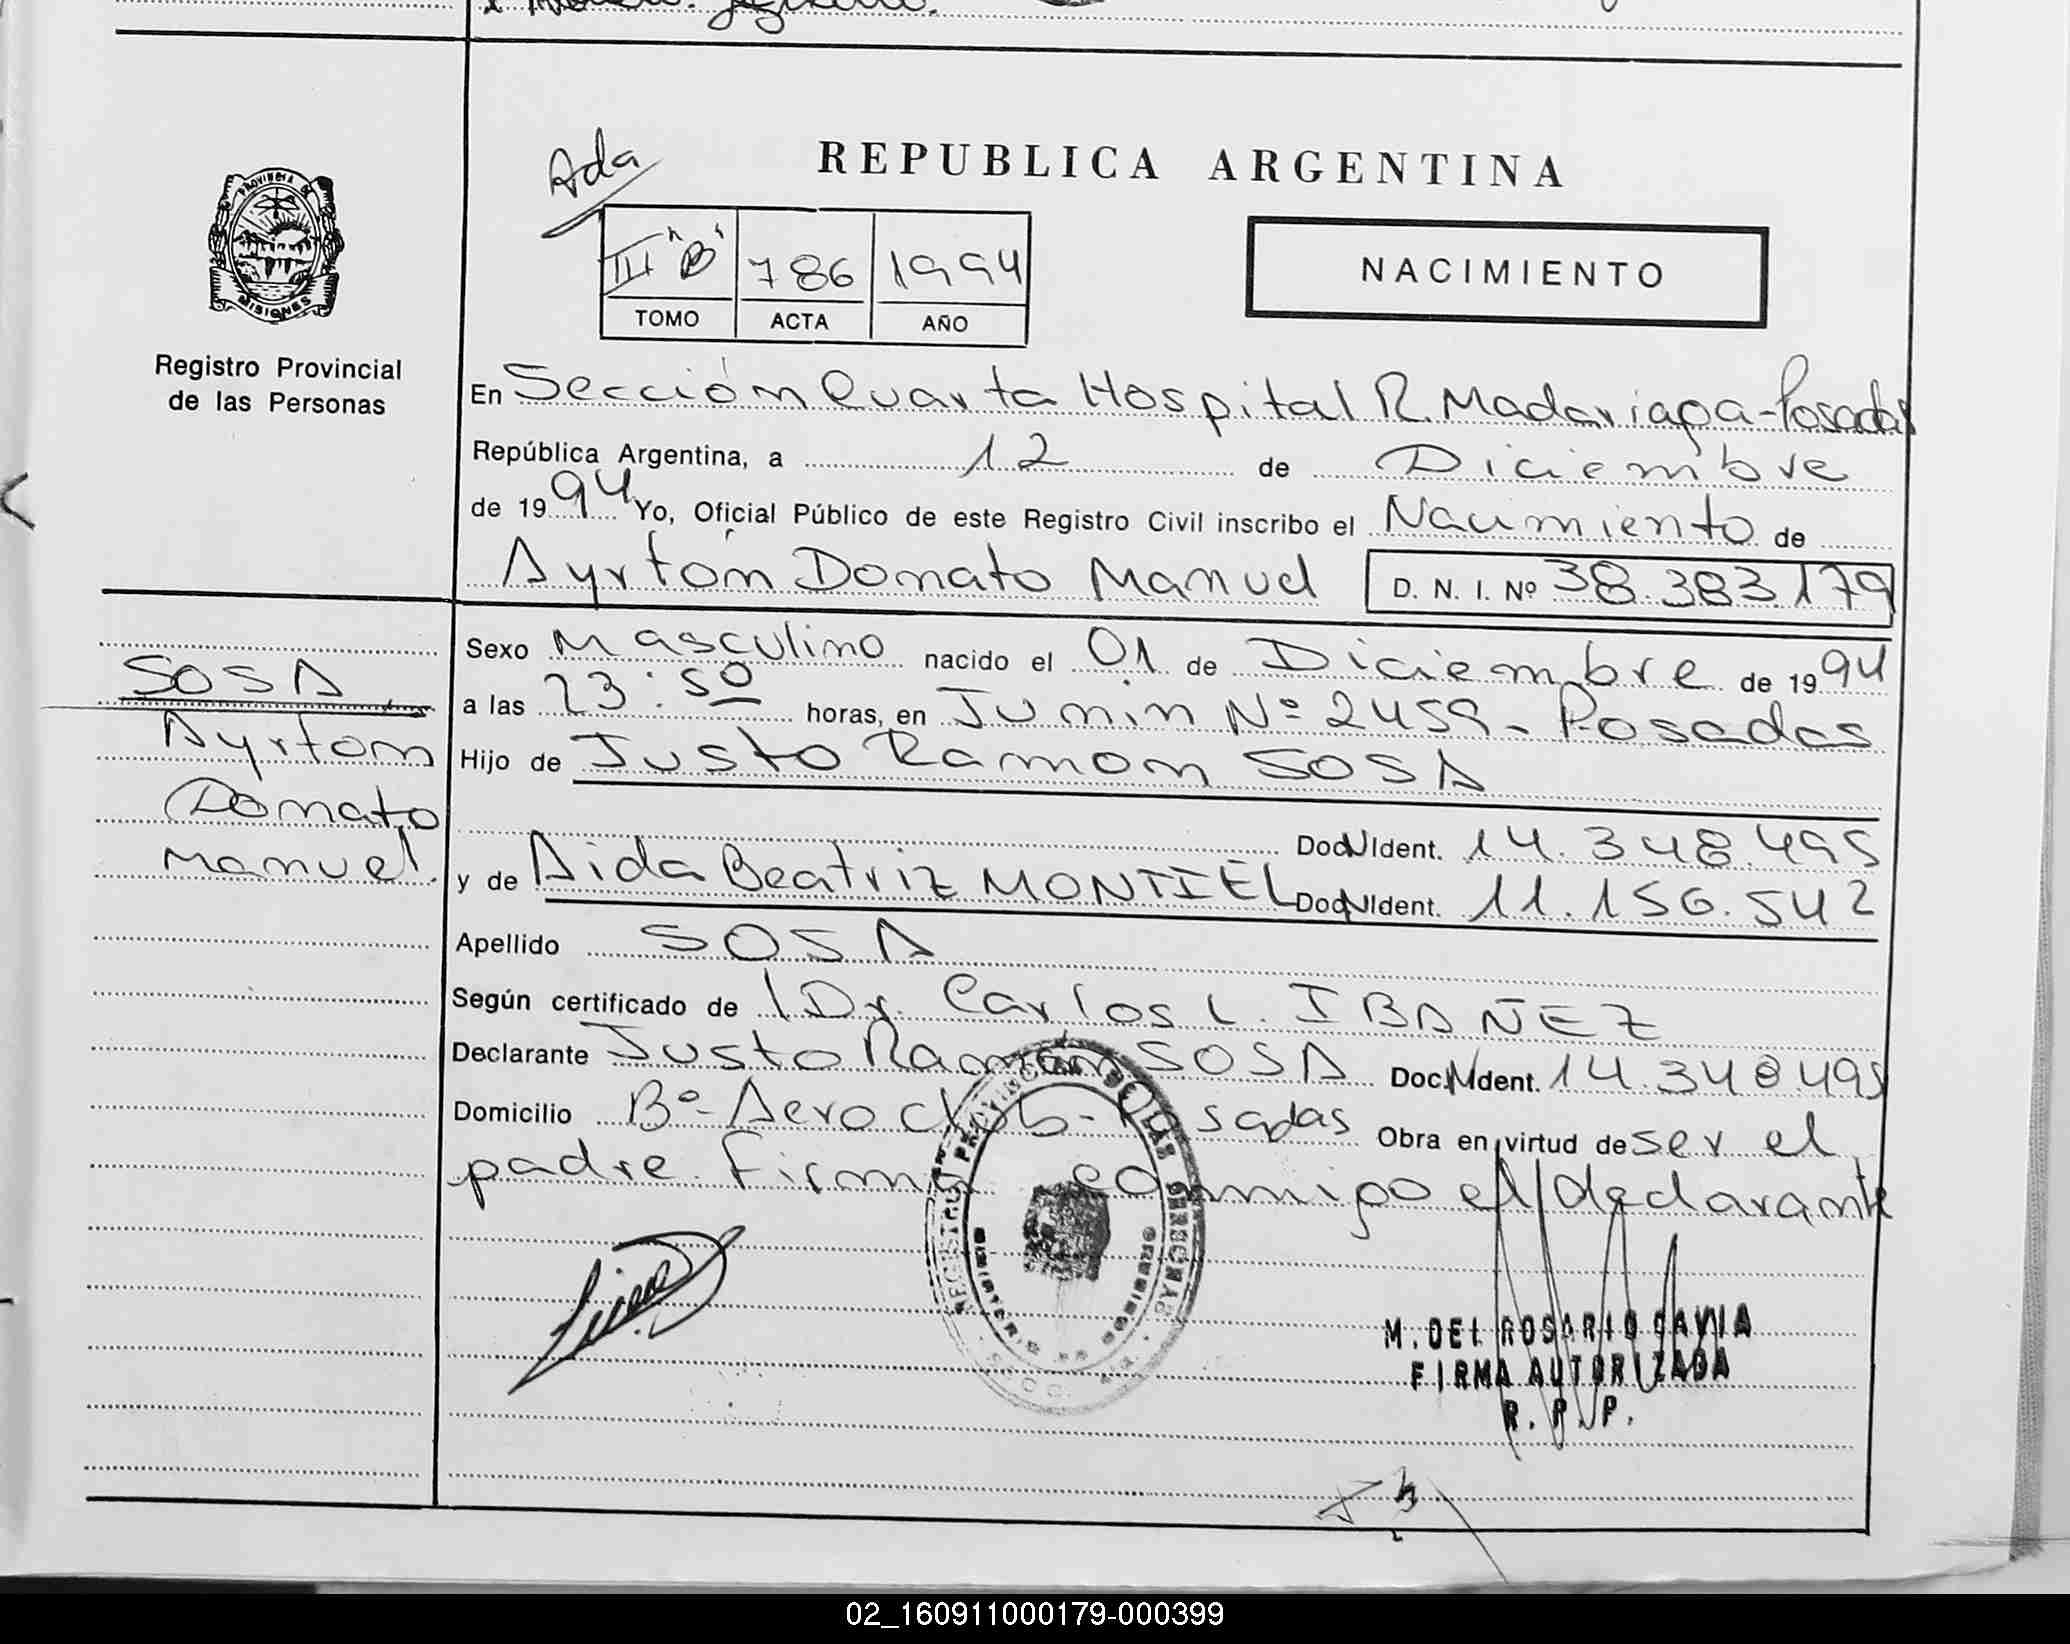 Ada
REPUBLICA ARGENTINA
PROVINCIA DE
MISIONES
III "B" 786 1994
TOMO ACTA AÑO
NACIMIENTO
Registro Provincial
de las Personas
En Sección Cuarta Hospital R. Madariaga - Posadas
República Argentina, a 12 de Diciembre
de 1994 Yo, Oficial Público de este Registro Civil inscribo el Nacimiento de
Ayrtón Donato Manuel D. N. I. Nº 38.383.179
Sexo Masculino nacido el 01 de Diciembre de 1994
a las 23:50 horas, en Junín Nº 2459 - Posadas
Hijo de Justo Ramon SOSA
Doc. N Ident. 14.348.495
y de Aida Beatriz MONTIEL Doc. N Ident. 11.156.542
Apellido SOSA
Según certificado de Dr. Carlos L. IBAÑEZ
Declarante Justo Ramón SOSA Doc. N Ident. 14.348.495
Domicilio Bº Aero club - Posadas Obra en virtud de ser el
padre. Firma conmigo el declarante
SOSA
Ayrton
Donato
Manuel.
REGISTRO PROVINCIAL DE LAS PERSONAS
MINISTERIO DE GOBIERNO
M. DEL ROSARIO GAVIA
FIRMA AUTORIZADA
R. P. P.
02_160911000179-000399